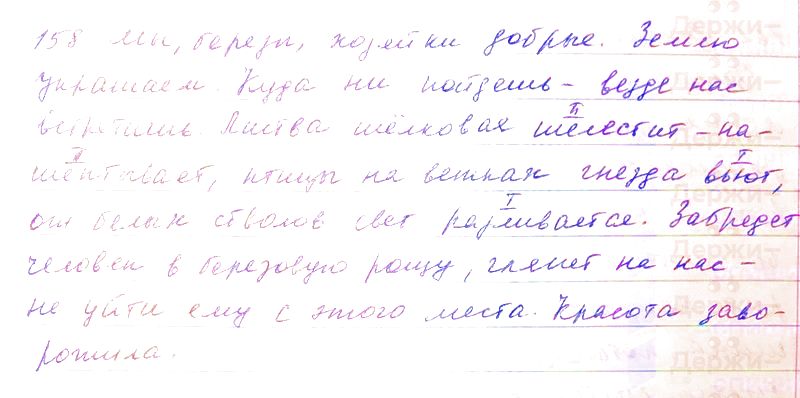 158 Мы, березы, хозяйки добрые. Землю
украшаем. Куда ни пойдешь – везде нас
встретишь. Листва шёлковая шелестит – на-
II
шептывает, птицы на ветках гнезда вьют,
II I
от белых стволов свет разливается. Забредет
I
человек в березовую рощу, глянет на нас –
не уйти ему с этого места. Красота заво-
рожила.
Держи–
Держи–
Держи–
Держи–
Держи–
Держи–
Держи–